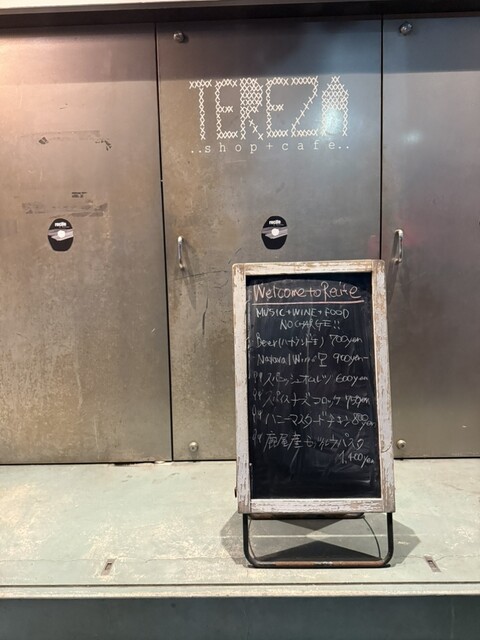 TEREZA
..shop+cafe..
Welcome to Reite
MUSIC + WINE + FOOD
NO CHARGE!!
Beer (ハートランド) 700yen
Natural Wine 900yen~
スパニッシュオムレツ 600yen
スパイスチーズコロッケ 750yen
ハニーマスタードチキン 800yen
パスタ
1,400yen